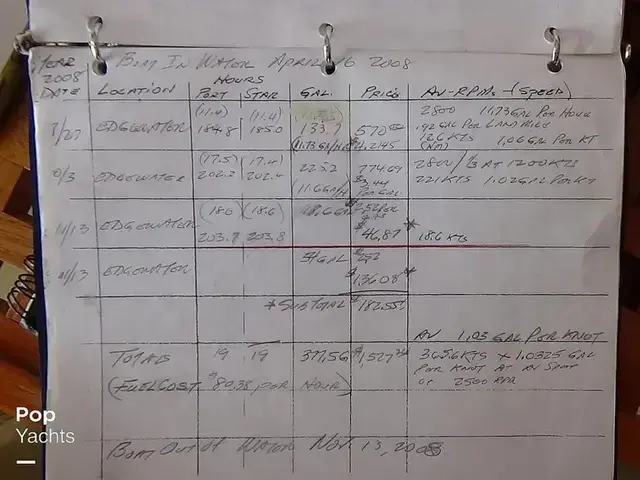 YEAR BOAT IN WATER APRIL 16 2008
2008 HOURS
DATE LOCATION PORT STAR GAL. PRICE AV-RPM. - (SPEED)
(11.4) (11.4) 2800 11.73 GAL PER HOUR
7/27 EDGEWATER 184.8 185.0 133.7 570 .92 GAL PER LAND MILE
126 KTS 1.06 GAL PER KT
(17.5) (17.4) 2800 / 1/3 AT 1200 KTS
9/3 EDGEWATER 202.2 202.4 225.2 774.69 221 KTS 1.02 GAL PER KT
11.6 GA/H PER GAL
(18.0) (18.6) 18.6 GAL
11/13 EDGEWATER 203.7 203.8 $46.87 * 18.6 KTS
11/13 EDGEWATER 54 GAL
$136.08 *
* SUBTOTAL $182.55
AV 1.03 GAL PER KNOT
TOTALS 19 19 377.56 $1,527 365.6 KTS × 1.0325 GAL
(FUEL COST $80.38 PER HOUR) PER KNOT AT AV SPEED
OF 2500 RPM
BOAT OUT OF WATER NOV. 13, 2008
Pop
Yachts